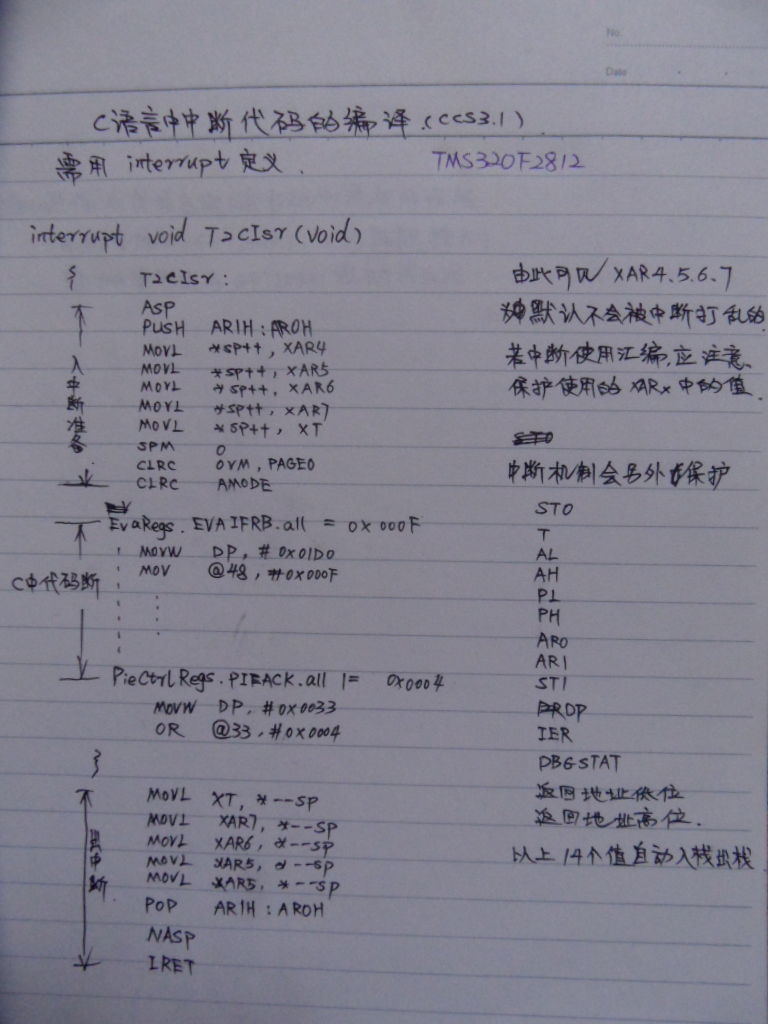 No.
Date
C语言中中断代码的编译.(CCS3.1)
需用 interrupt 定义. TMS320F2812
interrupt void T2CIsr(void)
{ T2CIsr:
ASP
PUSH AR1H:AR0H
MOVL *SP++, XAR4
MOVL *SP++, XAR5
MOVL *SP++, XAR6
MOVL *SP++, XAR7
MOVL *SP++, XT
SPM 0
CLRC OVM, PAGE0
CLRC AMODE
入中断准备
EvaRegs.EVAIFRB.all = 0x000F
MOVW DP, #0x01D0
MOV @48, #0x000F
C中代码断
PieCtrlRegs.PIEACK.all |= 0x0004
MOVW DP, #0x0033
OR @33, #0x0004
}
MOVL XT, *--SP
MOVL XAR7, *--SP
MOVL XAR6, *--SP
MOVL XAR5, *--SP
MOVL XAR5, *--SP
POP AR1H:AR0H
NASP
IRET
中断
由此可以 XAR4.5.6.7
默认不会被中断打乱的
若中断使用汇编,应注意.
保护使用的XARx中的值.
中断机制会另外保护
ST0
T
AL
AH
PL
PH
AR0
AR1
ST1
DP
IER
DBGSTAT
返回地址低位
返回地址高位.
以上14个值自动入栈出栈